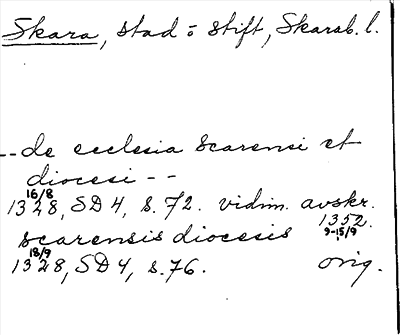 Skara, stad o stift, Skarab. l.
--de ecclesia scarensi et
diocesi --
16/8
1328, SD 4, s. 72. vidim. avskr.
1352.
scarensis diocesis 9-15/9
18/9
1328, SD 4, s. 76. orig.